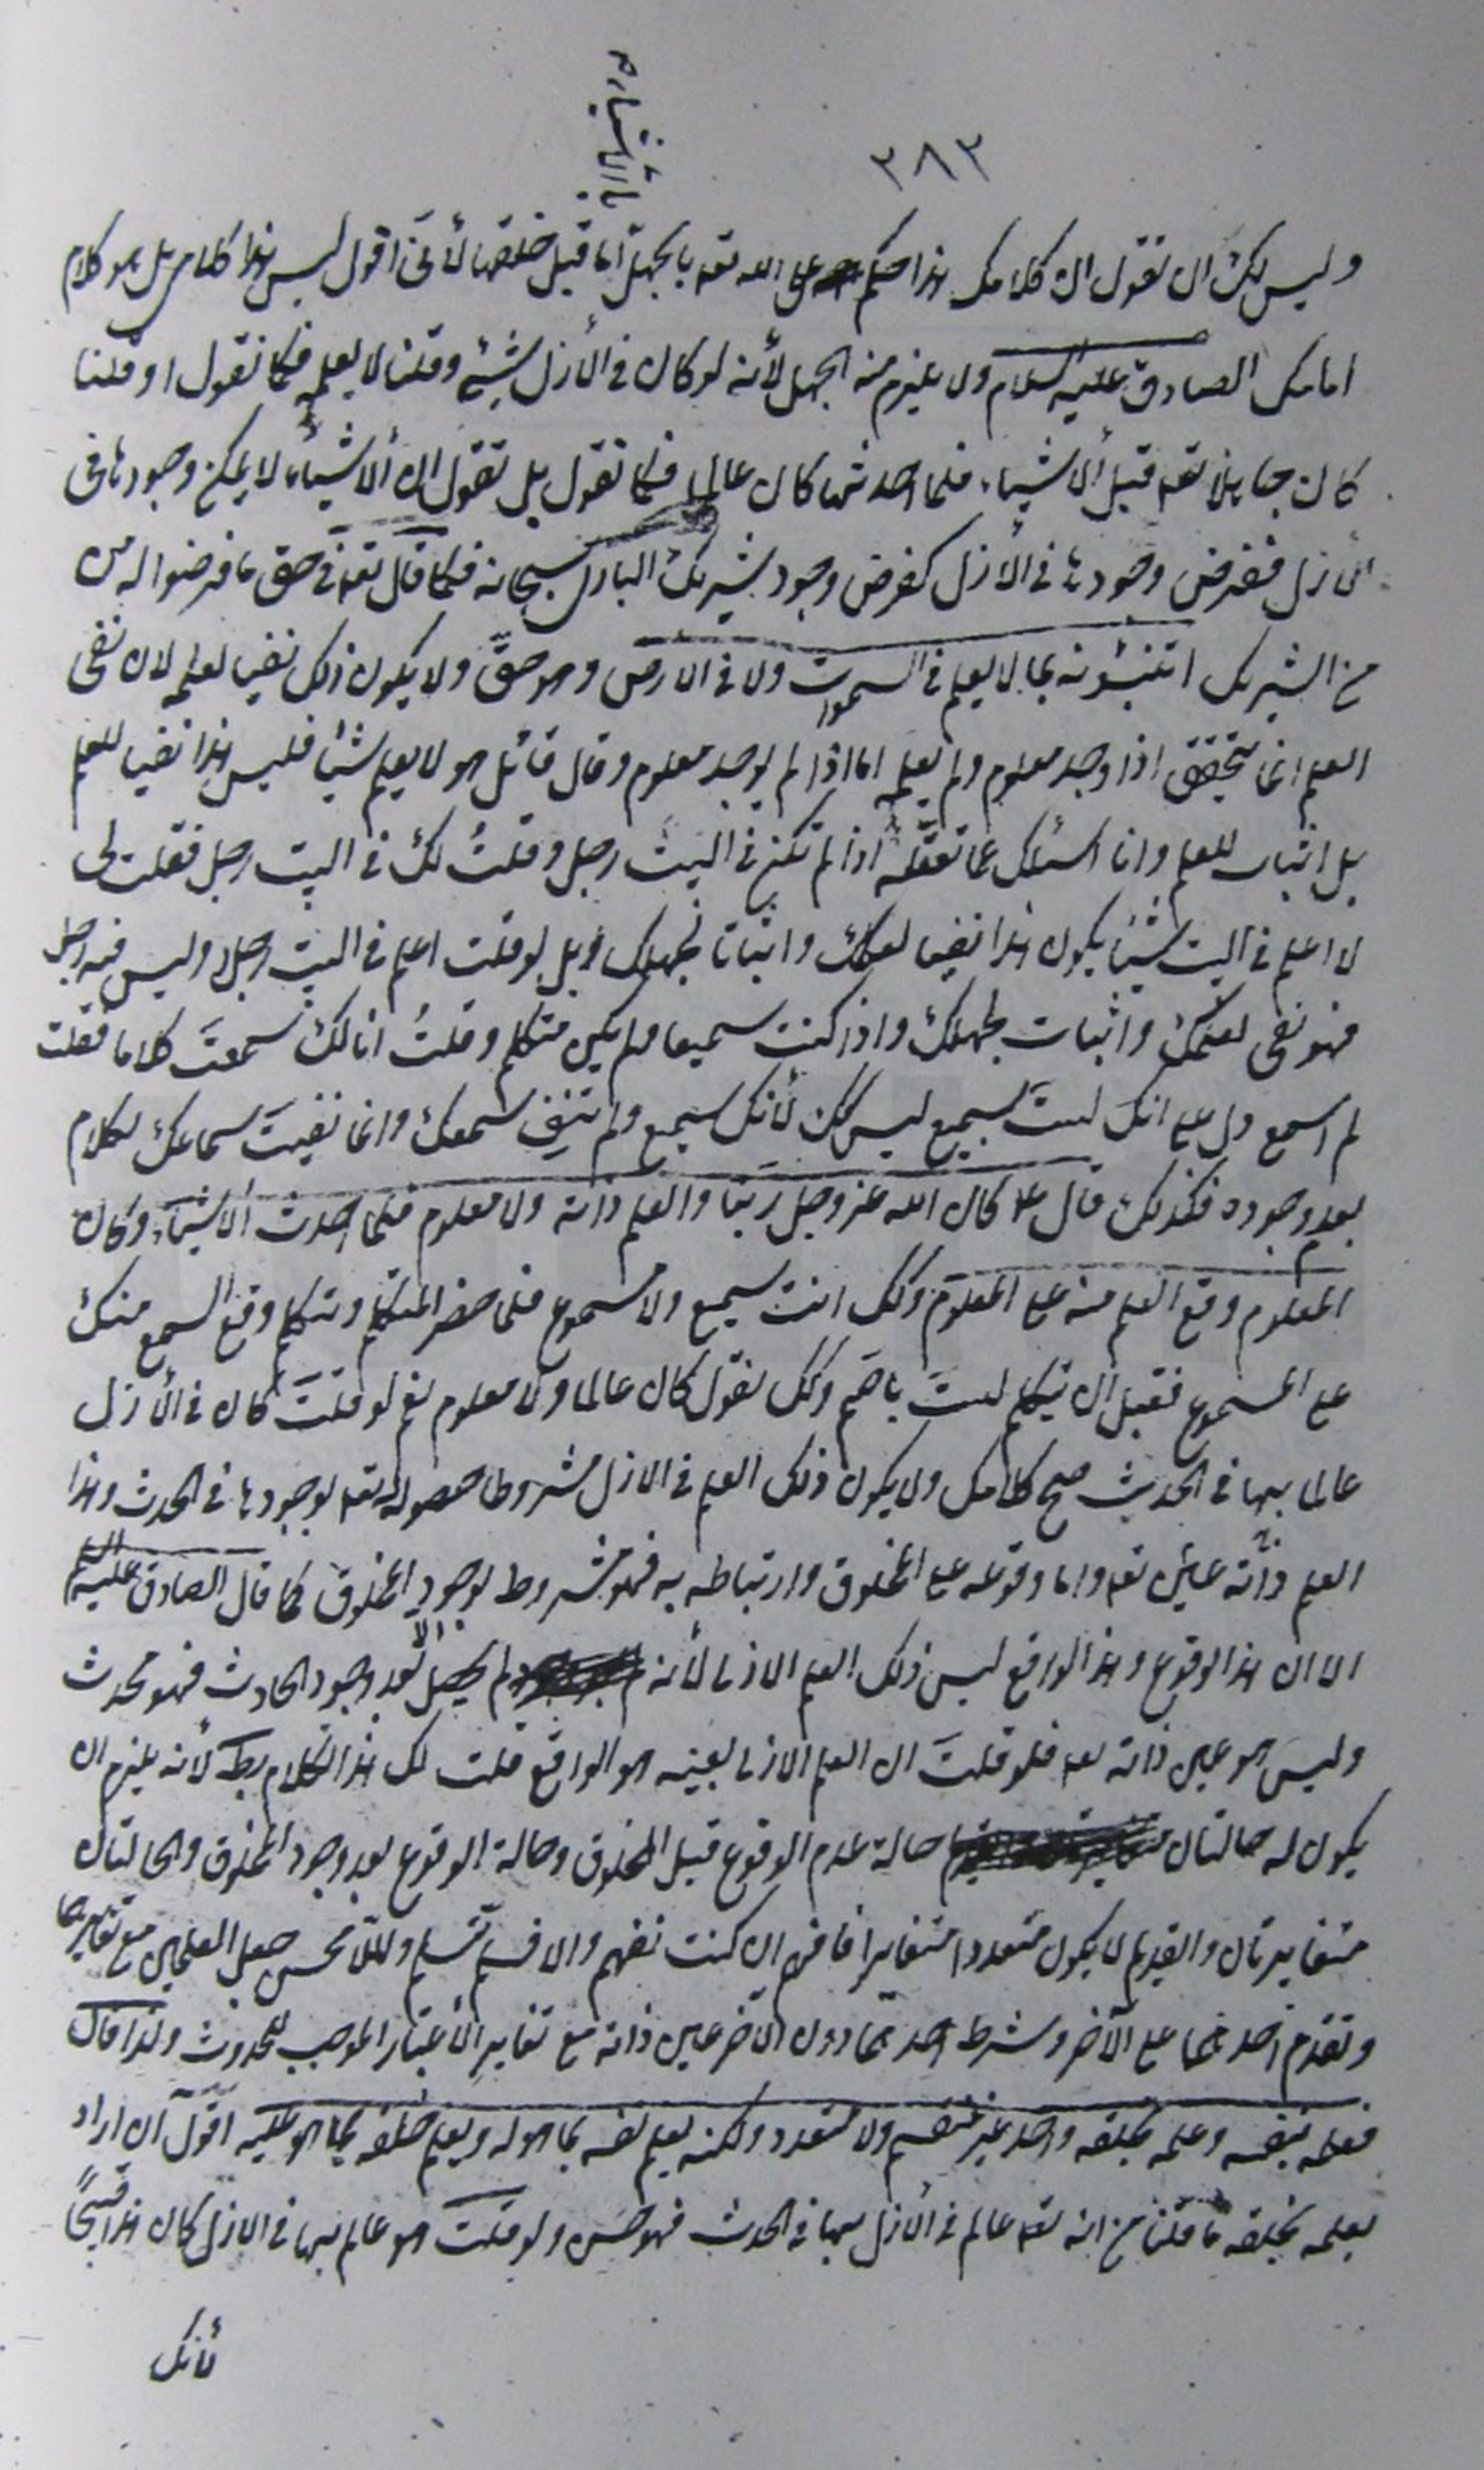 ٣٨٢
بالأشياء صح
وليس لك ان تقول ان كلامك هذا حكم على الله تعه بالجهل بها قبل خلقها لأنى اقول ليس هذا كلامى بل هو كلام
امامك الصادق عليه السلام ولا يلزم منه الجهل لأنه لو كان فى الأزل شيئ وقلنا لا يعلمه فكما تقول او قلنا
كان جاهلا تعه قبل الأشياء فلما احدثها كان عالما فكما تقول بل نقول ان الأشياء لا يمكن وجودها فى
الأزل ففرض وجودها فى الأزل كفرض وجود شريك البارى سبحانه فكما قال تعه فى حق ما فرضوا له من
من الشريك اتنبئونه بما لا يعلم فى السموات ولا فى الارض وهو حق ولا يكون ذلك نفيا لعلمه لان نفى
العلم انما يتحقق اذا وجد معلوم ولم يعلمه اما اذا لم يوجد معلوم وقال قائل هو لا يعلم شيئا فليس هذا نفيا للعلم
بل اثبات للعلم وانا اسئلك عما تعقله اذا لم تكن فى البيت رجل وقلتُ لك فى البيت رجل فقلت لى
لا اعلم فى البيت شيئا يكون هذا نفيا لعلمك واثباتا لجهلك بل لو قلت اعلم فى البيت رجلا وليس فيه رجل
فهو نفى لعلمك واثبات لجهلك واذا كنت سميعا ولم يكن متكلم وقلتُ انا لك سمعتَ كلاما فقلت
لم اسمع دل على انك لستَ بسميع ليس كك لأنك سميع ولم تنفِ سمعك وانما نفيتَ سماعك لكلام
بعدم وجوده فكذلك قال ع كان الله عز وجل ربنا والعلم ذاته ولا معلوم فلما احدث الأشياء وكان
المعلوم وقع العلم منه على المعلوم وكك انت سميع ولا مسموع فلما حضر المتكلم وتكلم وقع السمع منك
على المسموع فقبل ان يتكلم لستَ باصَم وكك نقول كان عالما ولا معلوم نعم لو قلتَ كان فى الأزل
عالما بها فى الحدث صح كلامك ولا يكون ذلك العلم فى الازل مشروطا حصوله له تعه بوجودها فى الحدث وهذا
العلم ذاته عين تعه واما وقوعه على المخلوق وارتباطه به فهو مشروط بوجود المخلوق كما قال الصادق عليه السلام
الا ان هذا الوقوع وهذا الواقع ليس ذلك العلم الازلى لأنه لم يحصل الا بعد وجود الحادث فهو محدث
وليس هو عين ذاته تعه فلو قلتَ ان العلم الازلى بعينه هو الواقع قلت لك هذا الكلام بط لأنه يلزم ان
يكون له حالتان حالة عدم الوقوع قبل المخلوق وحالة الوقوع بعد وجود المخلوق والحالتان
متغايرتان والقديم لا يكون متعددا متغايرا فافهم ان كنت تفهم والا فسلّم تسلم والملا محسن جعل العلمين مع تغايرهما
وتقدم احدهما على الآخر وشرط احدهما دون الآخر عين ذاته مع تغاير الأعتبار الموجب للحدوث ولذا قال
فعلمه بنفسه وعلمه بخلقه واحد غير منقسم ولا متعدد ولكنه يعلم نفسه بما هو له ويعلم خلقه بما هو عليه اقول ان اراد
بعلمه بخلقه ما قلنا من انه تعه عالم فى الأزل بها فى الحدث فهو حسن ولو قلت هو عالم بها فى الازل كان هذا قبيحاً
لأنك